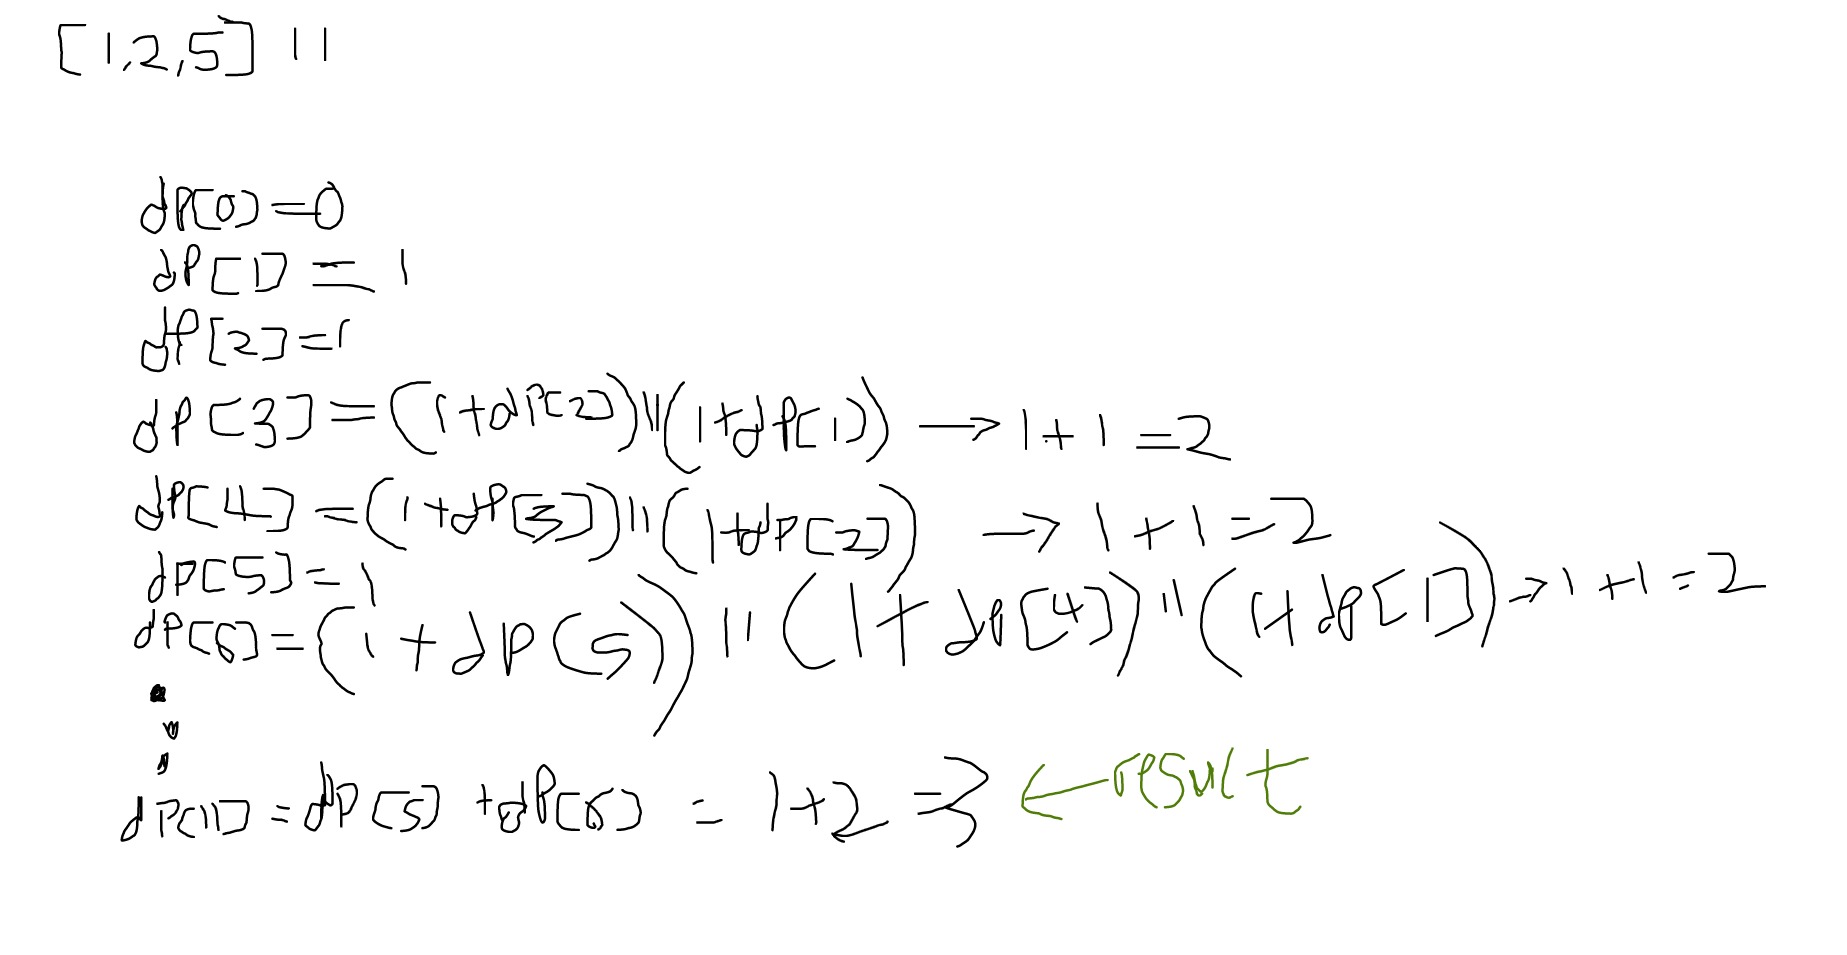 [1,2,5] 11
dp[0]=0
dp[1] = 1
dp[2]=1
dp[3]=(1+dp[2])||(1+dp[1]) → 1+1=2
dp[4]=(1+dp[3])||(1+dp[2]) → 1+1=2
dp[5]=1
dp[6]=(1+dp(5))||(1+dp[4])||(1+dp[1]) → 1+1=2
.
.
.
dp[11]=dp[5]+dp[6] = 1+2=3 ← result